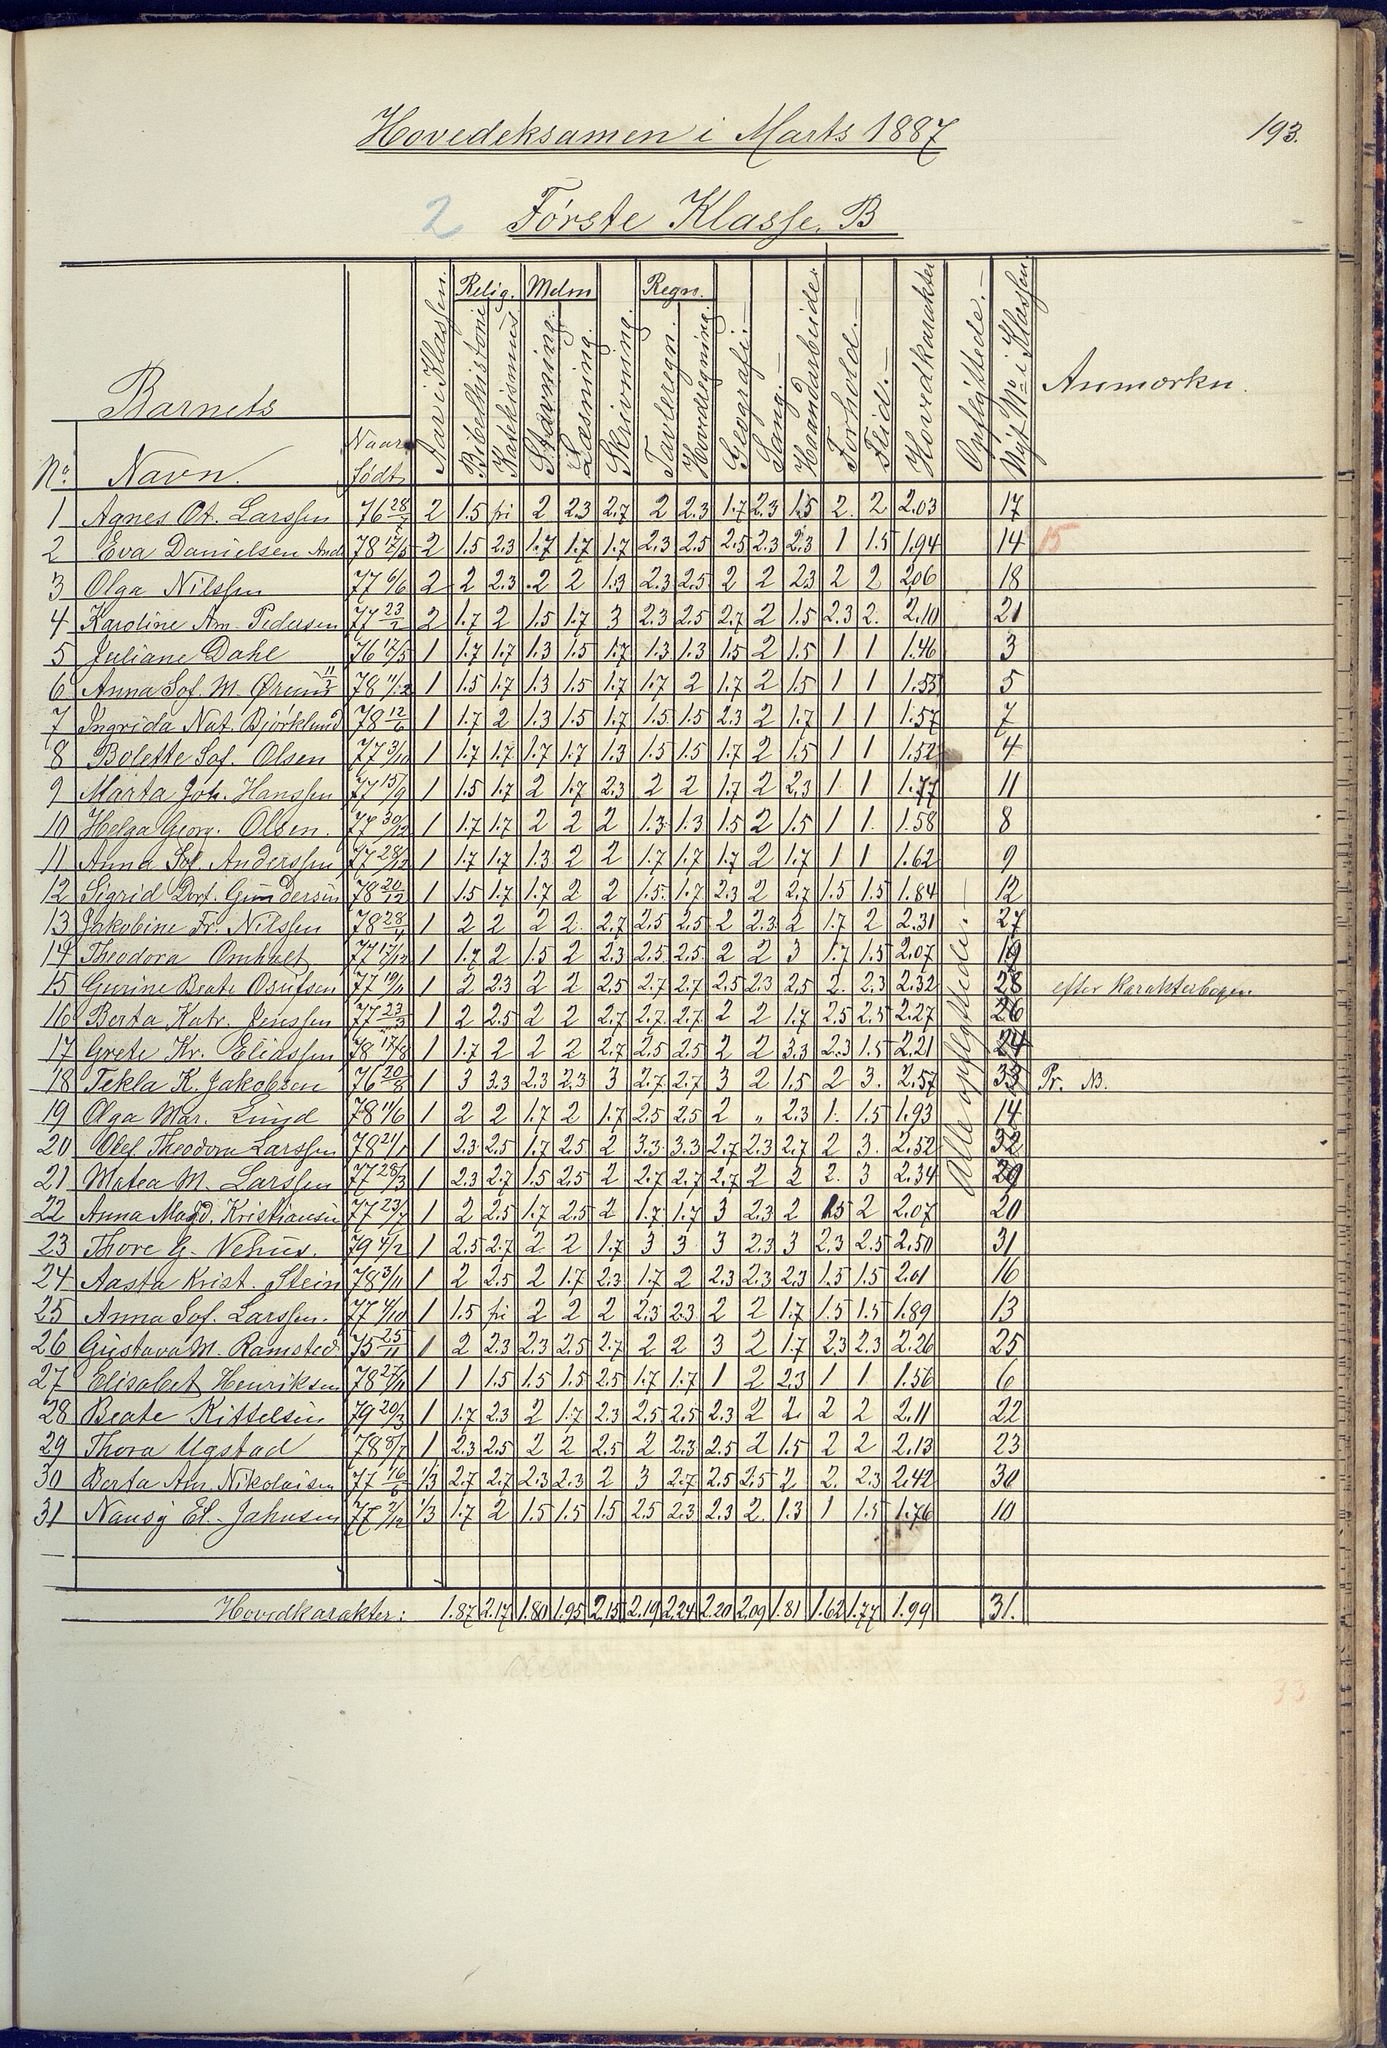 193.
Hovedeksamen i Marts 1887
2 Første Klasse. B
Barnets
No. Navn. Naar født Aar i Klassen. Relig. Bibelhistorie Katekismus Mdm Stavning. Læsning. Skrivning. Regn. Tavleregn. Hovedregning. Geografi. Sang. Haandarbeide Forhold. Flid. Hovedkarakter Opflyttede. Nyt No i Klassen Anmærkn.
1 Agnes Ot. Larssen 76 28/7 2 1.5 fri 2 2.3 2.7 2 2.3 1.7 2.3 1.5 2. 2 2.03 17
2 Eva Danielsen And. 78 12/5 2 1.5 2.3 1.7 1.7 1.7 2.3 2.5 2.5 2.3 2.3 1 1.5 1.94 14 15
3 Olga Nilssen 77 6/6 2 2 2.3 2 2 1.3 2.3 2.5 2 2 2.3 2 2 2.06 18
4 Karoline Am. Pedersen 77 23/2 2 1.7 2 1.5 1.7 3 2.3 2.5 2.7 2 1.5 2.3 2. 2.10 21
5 Juliane Dahl 76 17/5 1 1.7 1.7 1.3 1.5 1.7 1.3 1.3 1.5 2 1.5 1 1 1.46 3
6 Anna Sof. M. 78 11/12 1 1.5 1.7 1.3 1.5 1.7 1.7 2 1.7 2 1.5 1 1 1.53 5
7 Ingrida Nat. Bjørklund 78 12/6 1 1.7 2 1.3 1.5 1.7 1.5 1.5 2.3 2 1.7 1 1 1.57 7
8 Bolette Sof. Olsen 77 3/10 1 1.7 1.7 1.7 1.7 1.3 1.5 1.5 1.7 2 1.5 1 1 1.52 4
9 Marta Joh. Hanssen 77 15/9 1 1.5 1.7 2 1.7 2.3 2 2 1.7 2 2.3 1 1 1.77 11
10 Helga Georg. Olsen. 77 30/12 1 1.7 1.7 2 2 2 1.3 1.3 1.5 2 1.5 1 1. 1.58 8
11 Anna Sof. Anderssen 77 28/12 1 1.7 1.7 1.3 2 2 1.7 1.7 1.7 2 1.7 1 1 1.62 9
12 Sigrid Dort. Gundersen 78 20/12 1 1.5 1.7 1.7 2 2 1.5 1.7 2.3 2 2.7 1.5 1.5 1.84 12
13 Jakobine Fr. Nilssen 78 28/4 1 2 2 2 2 2.7 2.5 2.5 2 2.3 2 1.7 2 2.31 27
14 Theodora Omholt 77 17/12 1 1.7 2 1.5 2 2.3 2.5 2.5 2 2 3 1.7 1.5 2.07 19
15 Gurine Beate Osufsen 77 19/11 1 2 2.3 2 2 2.5 2.7 2.7 2.5 2.3 2.5 2. 2.3 2.32 28 efter Karakterbogen
16 Berta Katr. Jenssen 77 23/3 1 2 2.5 2 2 2.7 2.7 2.7 2 2 1.7 2.5 2.5 2.27 26
17 Grete Kr. Eliassen 78 17/8 1 1.7 2 2 2 2.7 2.5 2.5 2 2 3.3 2.3 1.5 2.21 24
18 Tekla K. Jakobsen 76 20/8 1 3 3.3 2.3 2.3 3 2.7 2.7 3 2 1.5 2 3. 2.57 33 Pr. NB.
19 Olga Mar. Lund 78 11/6 1 2 2 1.7 2 1.7 2.5 2.5 2 " 2.3 1. 1.5 1.93 14
20 Olef. Theodora Larssen 78 24/1 1 2.3 2.5 1.7 2.5 2 3.3 3.3 2.7 2.3 2.7 2 3. 2.52 32
21 Matea M. Larssen 77 28/3 1 2.3 2.7 1.5 2.5 2 2.7 2.7 2.7 2 2 2. 3 2.34 29
22 Anna Magd. Kristiansen 77 23/7 1 2 2.5 1.7 2.5 2 1.7 1.7 3 2.3 2 1.5 2 2.07 20
23 Thore G. Nehus. 79 4/2 1 2.5 2.7 2 2 1.7 3 3 3 2.3 3 2.3 2.5 2.50 31
24 Aasta Krist. Stein 78 3/11 1 2 2.5 2 1.7 2.3 1.7 2 2.3 2.3 2.3 1.5 1.5 2.01 16
25 Anna Sof. Larssen. 77 4/10 1 1.5 fri 2 2 2 2.3 2.3 2 2 1.7 1.5 1.5 1.89 13
26 Gustava M. Ramsted 75 25/11 1 2 2.3 2.3 2.5 2.7 2 2 3 2 1.7 2.3 2.3 2.26 25
27 Elisabet Henriksen 78 27/11 1 1 1.5 1.5 1.5 2.5 1.7 1.7 1 2 2.3 1 1 1.56 6
28 Beate Kittelsen 79 20/3 1 1.7 2.3 2 1.7 2.3 2.5 2.5 2.3 2 2 2 2 2.11 22
29 Thora Ugstad 78 8/7 1 2.3 2.5 2 2 2.5 2 2.3 2.5 2 1.5 2 2 2.13 23
30 Berta Am. Nikolaisen 77 16/6 1/3 2.7 2.7 2.3 2.3 2 3 2.7 2.5 2.5 2 2. 2.3 2.42 30
31 Nansy El. Jahnsen 77 2/12 1/3 1.7 2 1.5 1.5 1.5 2.5 2.3 2.3 2. 1.3 1 1.5 1.76 10
Alle opflyttede.
Hovedkarakter: 1.87 2.17 1.80 1.95 2.15 2.19 2.24 2.20 2.09 1.81 1.62 1.77 1.99 31.
33